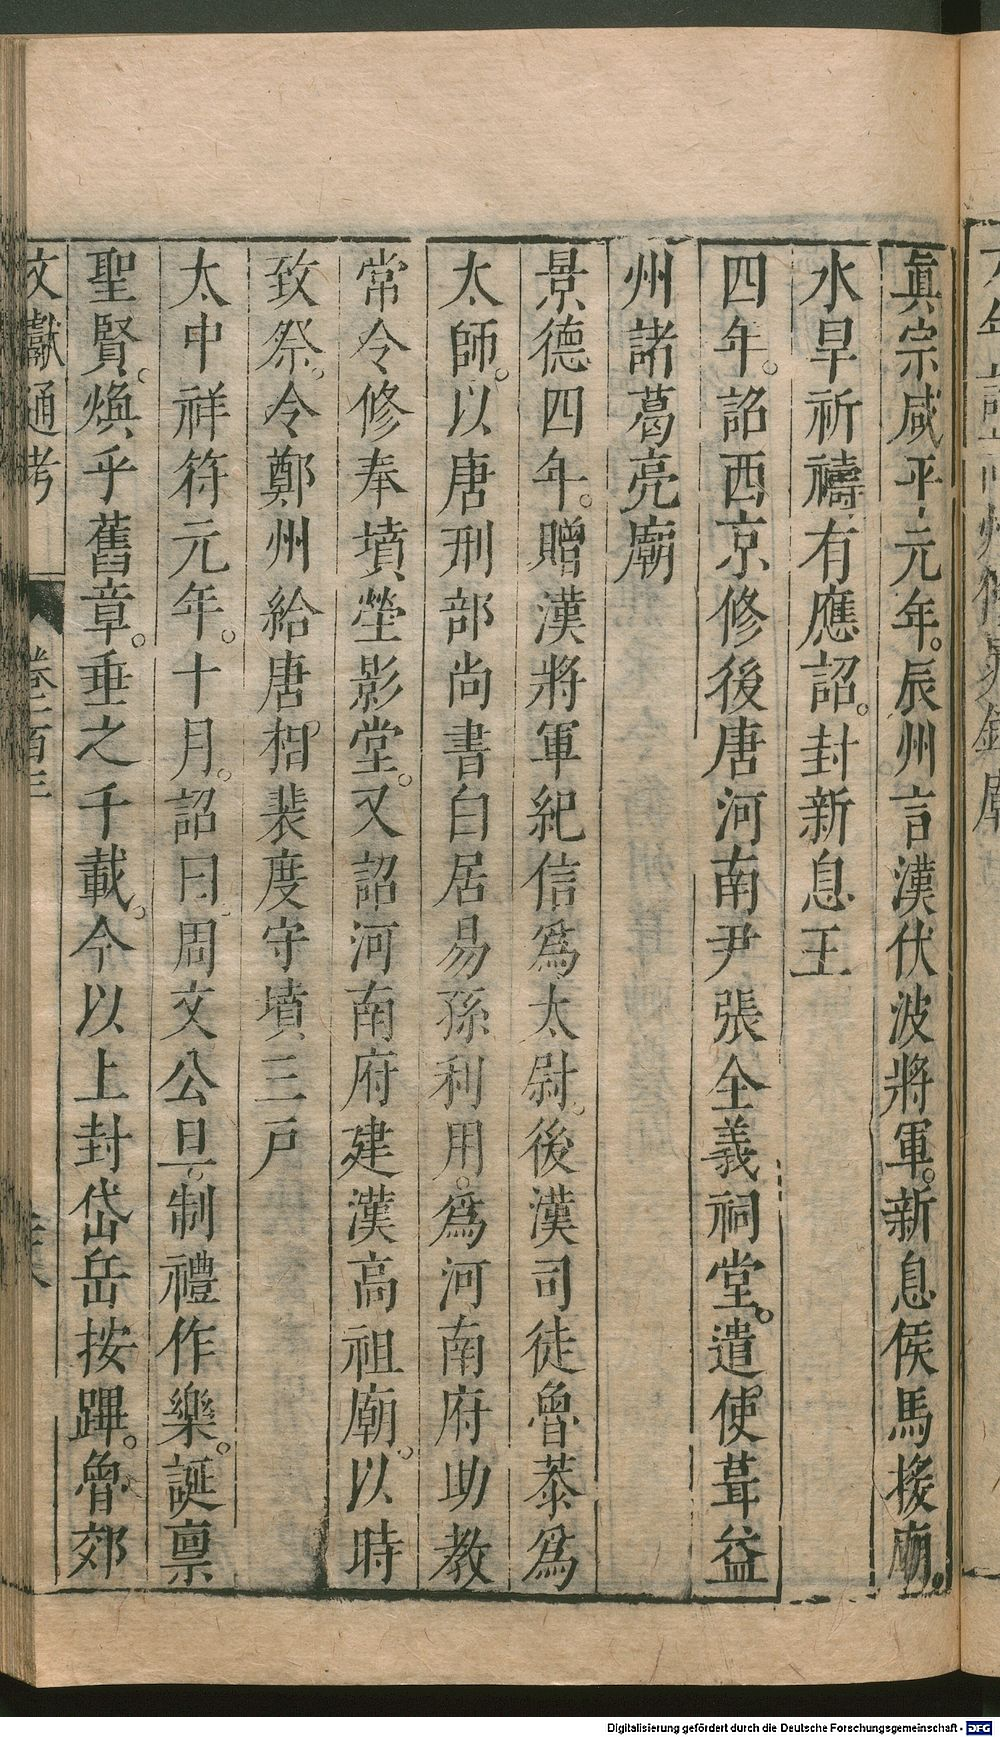 眞宗咸平元年。辰州言漢伏波將軍。新息侯馬援廟。
水旱祈禱有應詔。封新息王
四年。詔西京修後唐河南尹張全義祠堂。遣使葺益
州諸葛亮廟
景德四年。贈漢將軍紀信爲太尉。後漢司徒魯恭爲
太師。以唐刑部尚書白居易孫利用。爲河南府助教
常令修奉墳塋影堂。又詔河南府建漢高祖廟。以時
致祭。令鄭州給唐相裴度守墳三戸
太中祥符元年。十月。詔曰。周文公旦。制禮作樂。誕禀
聖賢。煥乎舊章。垂之千載。今以上封岱岳按蹕。魯郊
文獻通考 卷一百三
Digitalisierung gefördert durch die Deutsche Forschungsgemeinschaft - DFG